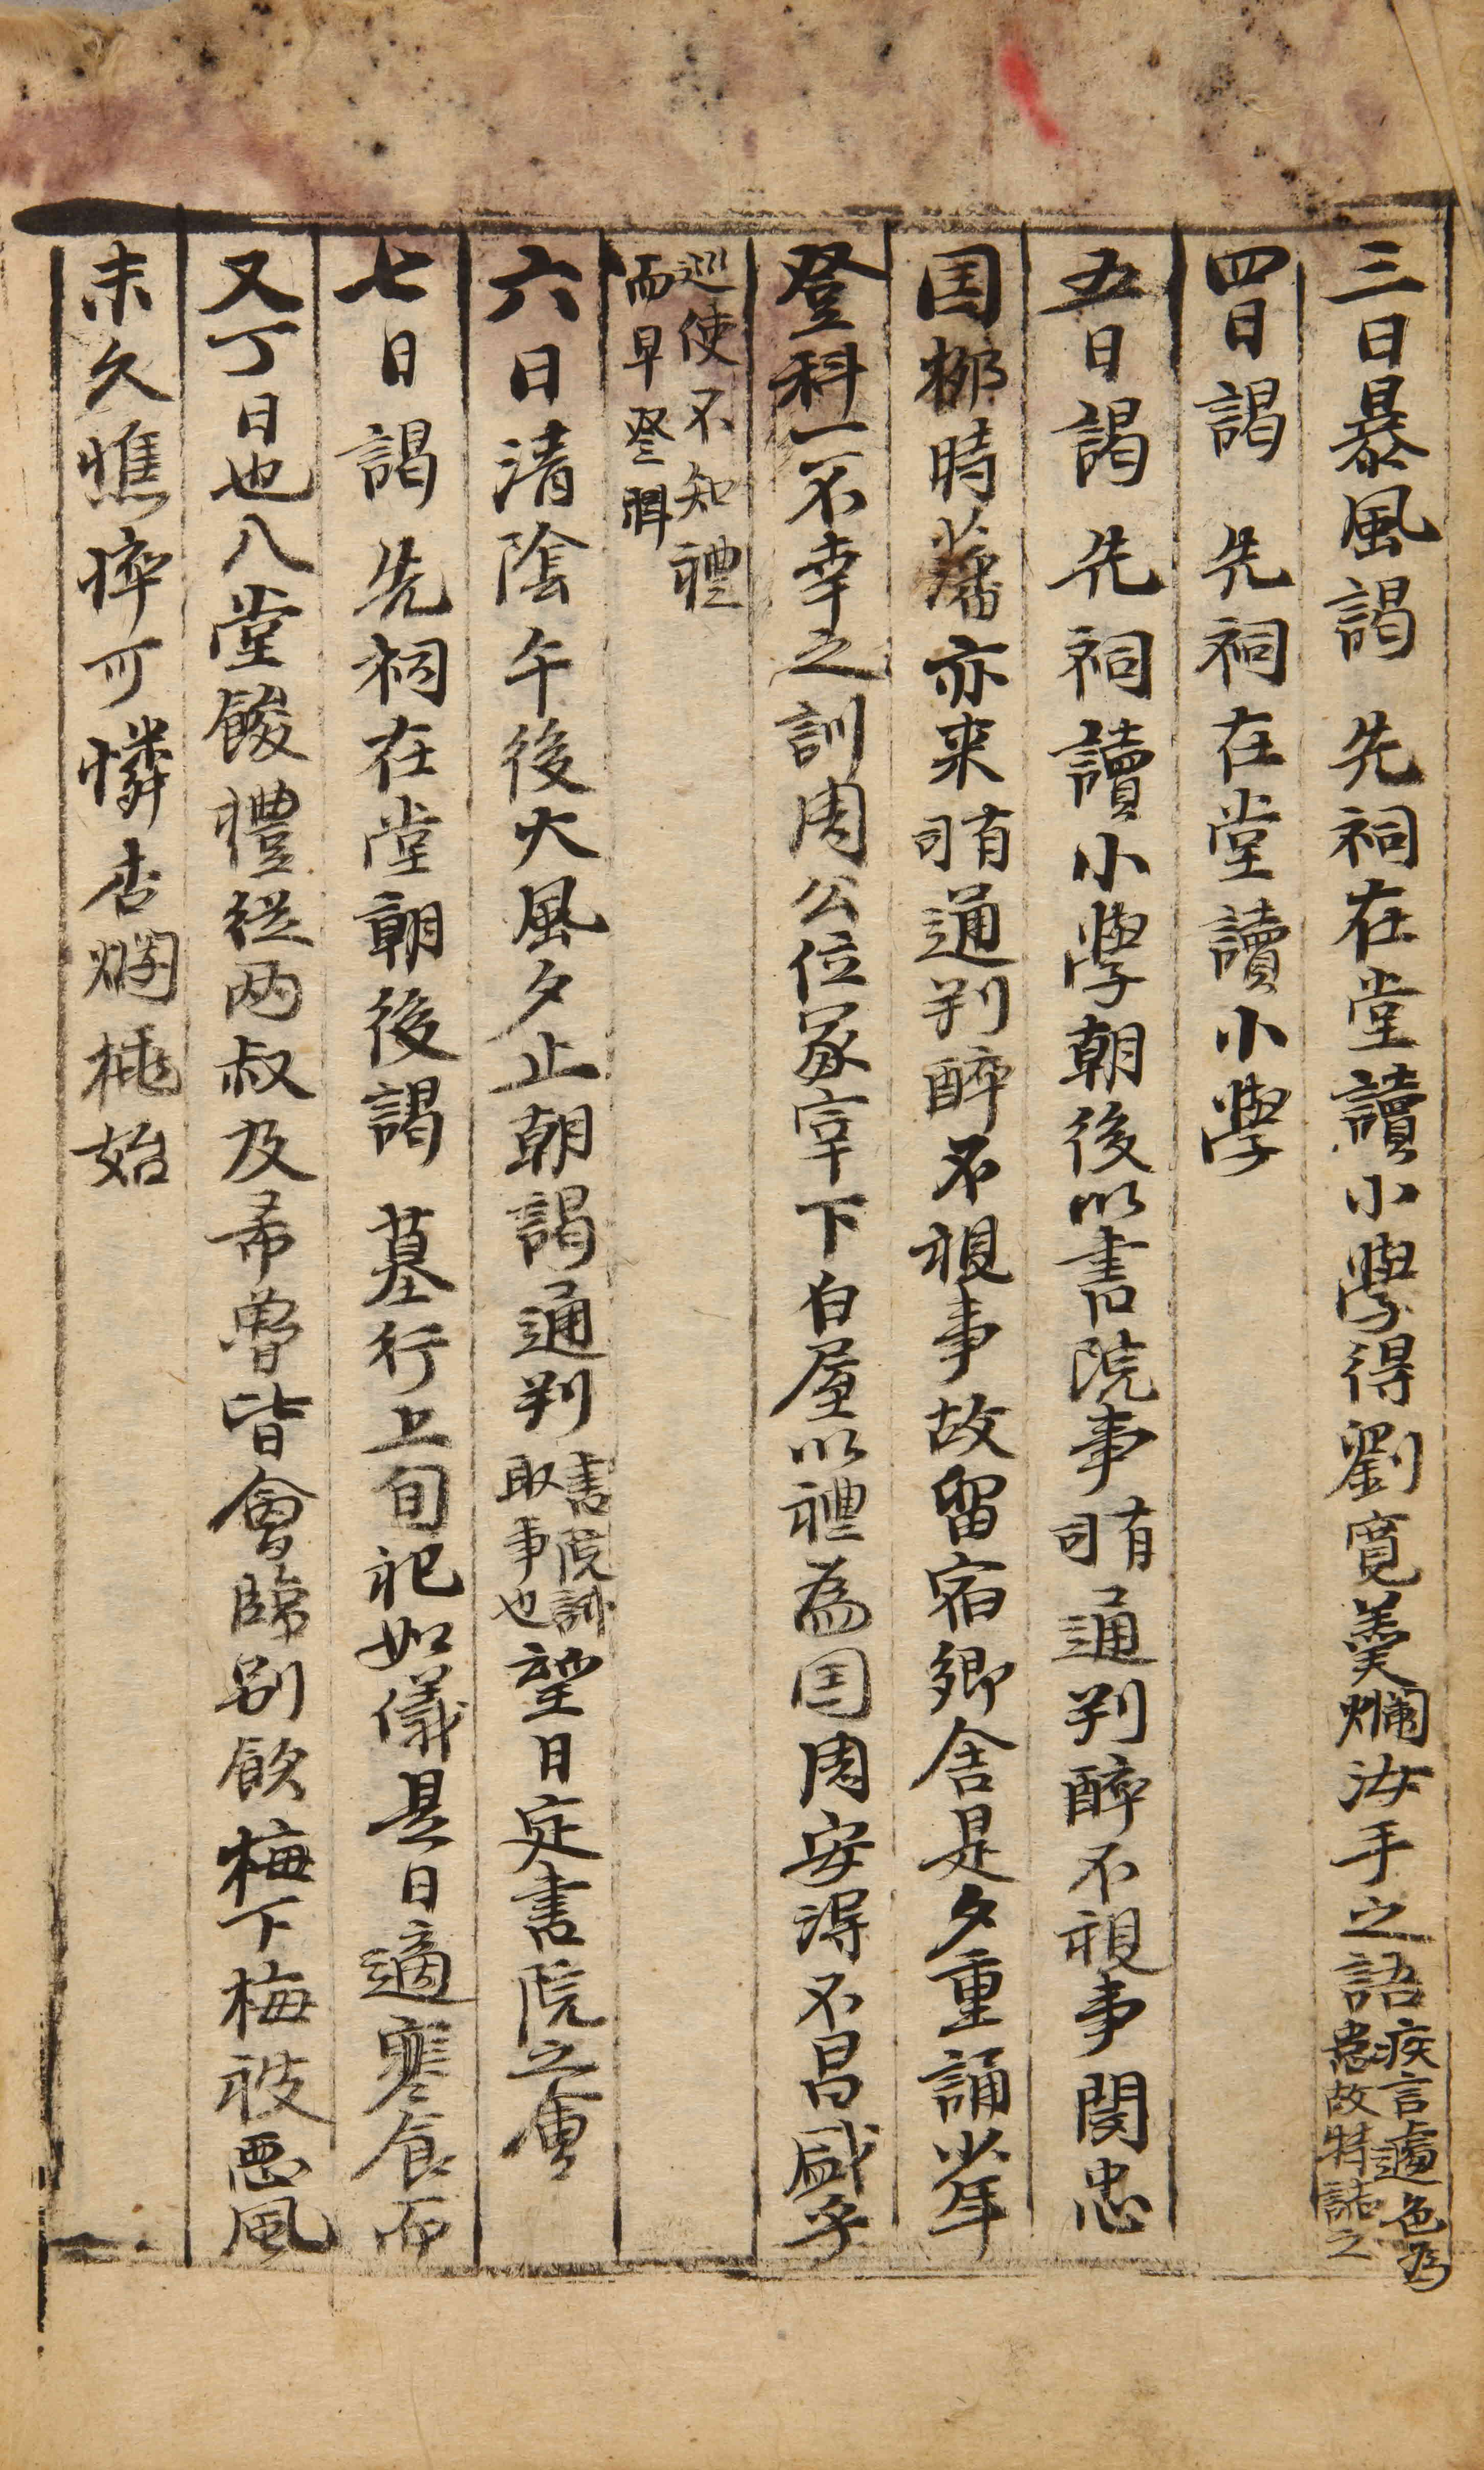 三日暴風謁 先祠在堂讀小學得劉寬羹爛汝手之語疾言遽色為患故特誌之
四日謁 先祠在堂讀小學
五日謁 先祠讀小學朝後以書院事有司通判醉不視事閔忠
国柳時藩亦来有司通判醉不視事故留宿鄉舍是夕重誦少年
登科一不幸之訓周公位冢宰下白屋以禮為国周安得不昌盛乎
巡使不知禮而早登科
六日清陰午後大風夕止朝謁通判書院訓取事也望日定書院之會
七日謁 先祠在堂朝後謁 墓行上旬祀如儀是日適寒食而
又丁日也八堂餕禮從两叔及希魯皆會臨别飲梅下梅被悪風
未久憔悴可憐杏爛桃始